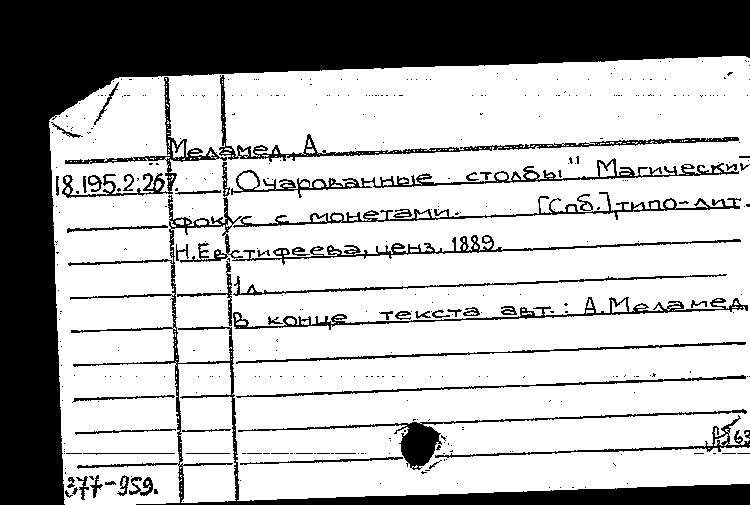 Меламед, А.
18.195.2.267 „Очарованные столбы" Магический
фокус с монетами. [Спб.], типо-лит.
Н.Евстифеева, ценз. 1889.
1 л.
В конце текста авт.: А.Меламед.
377-959.